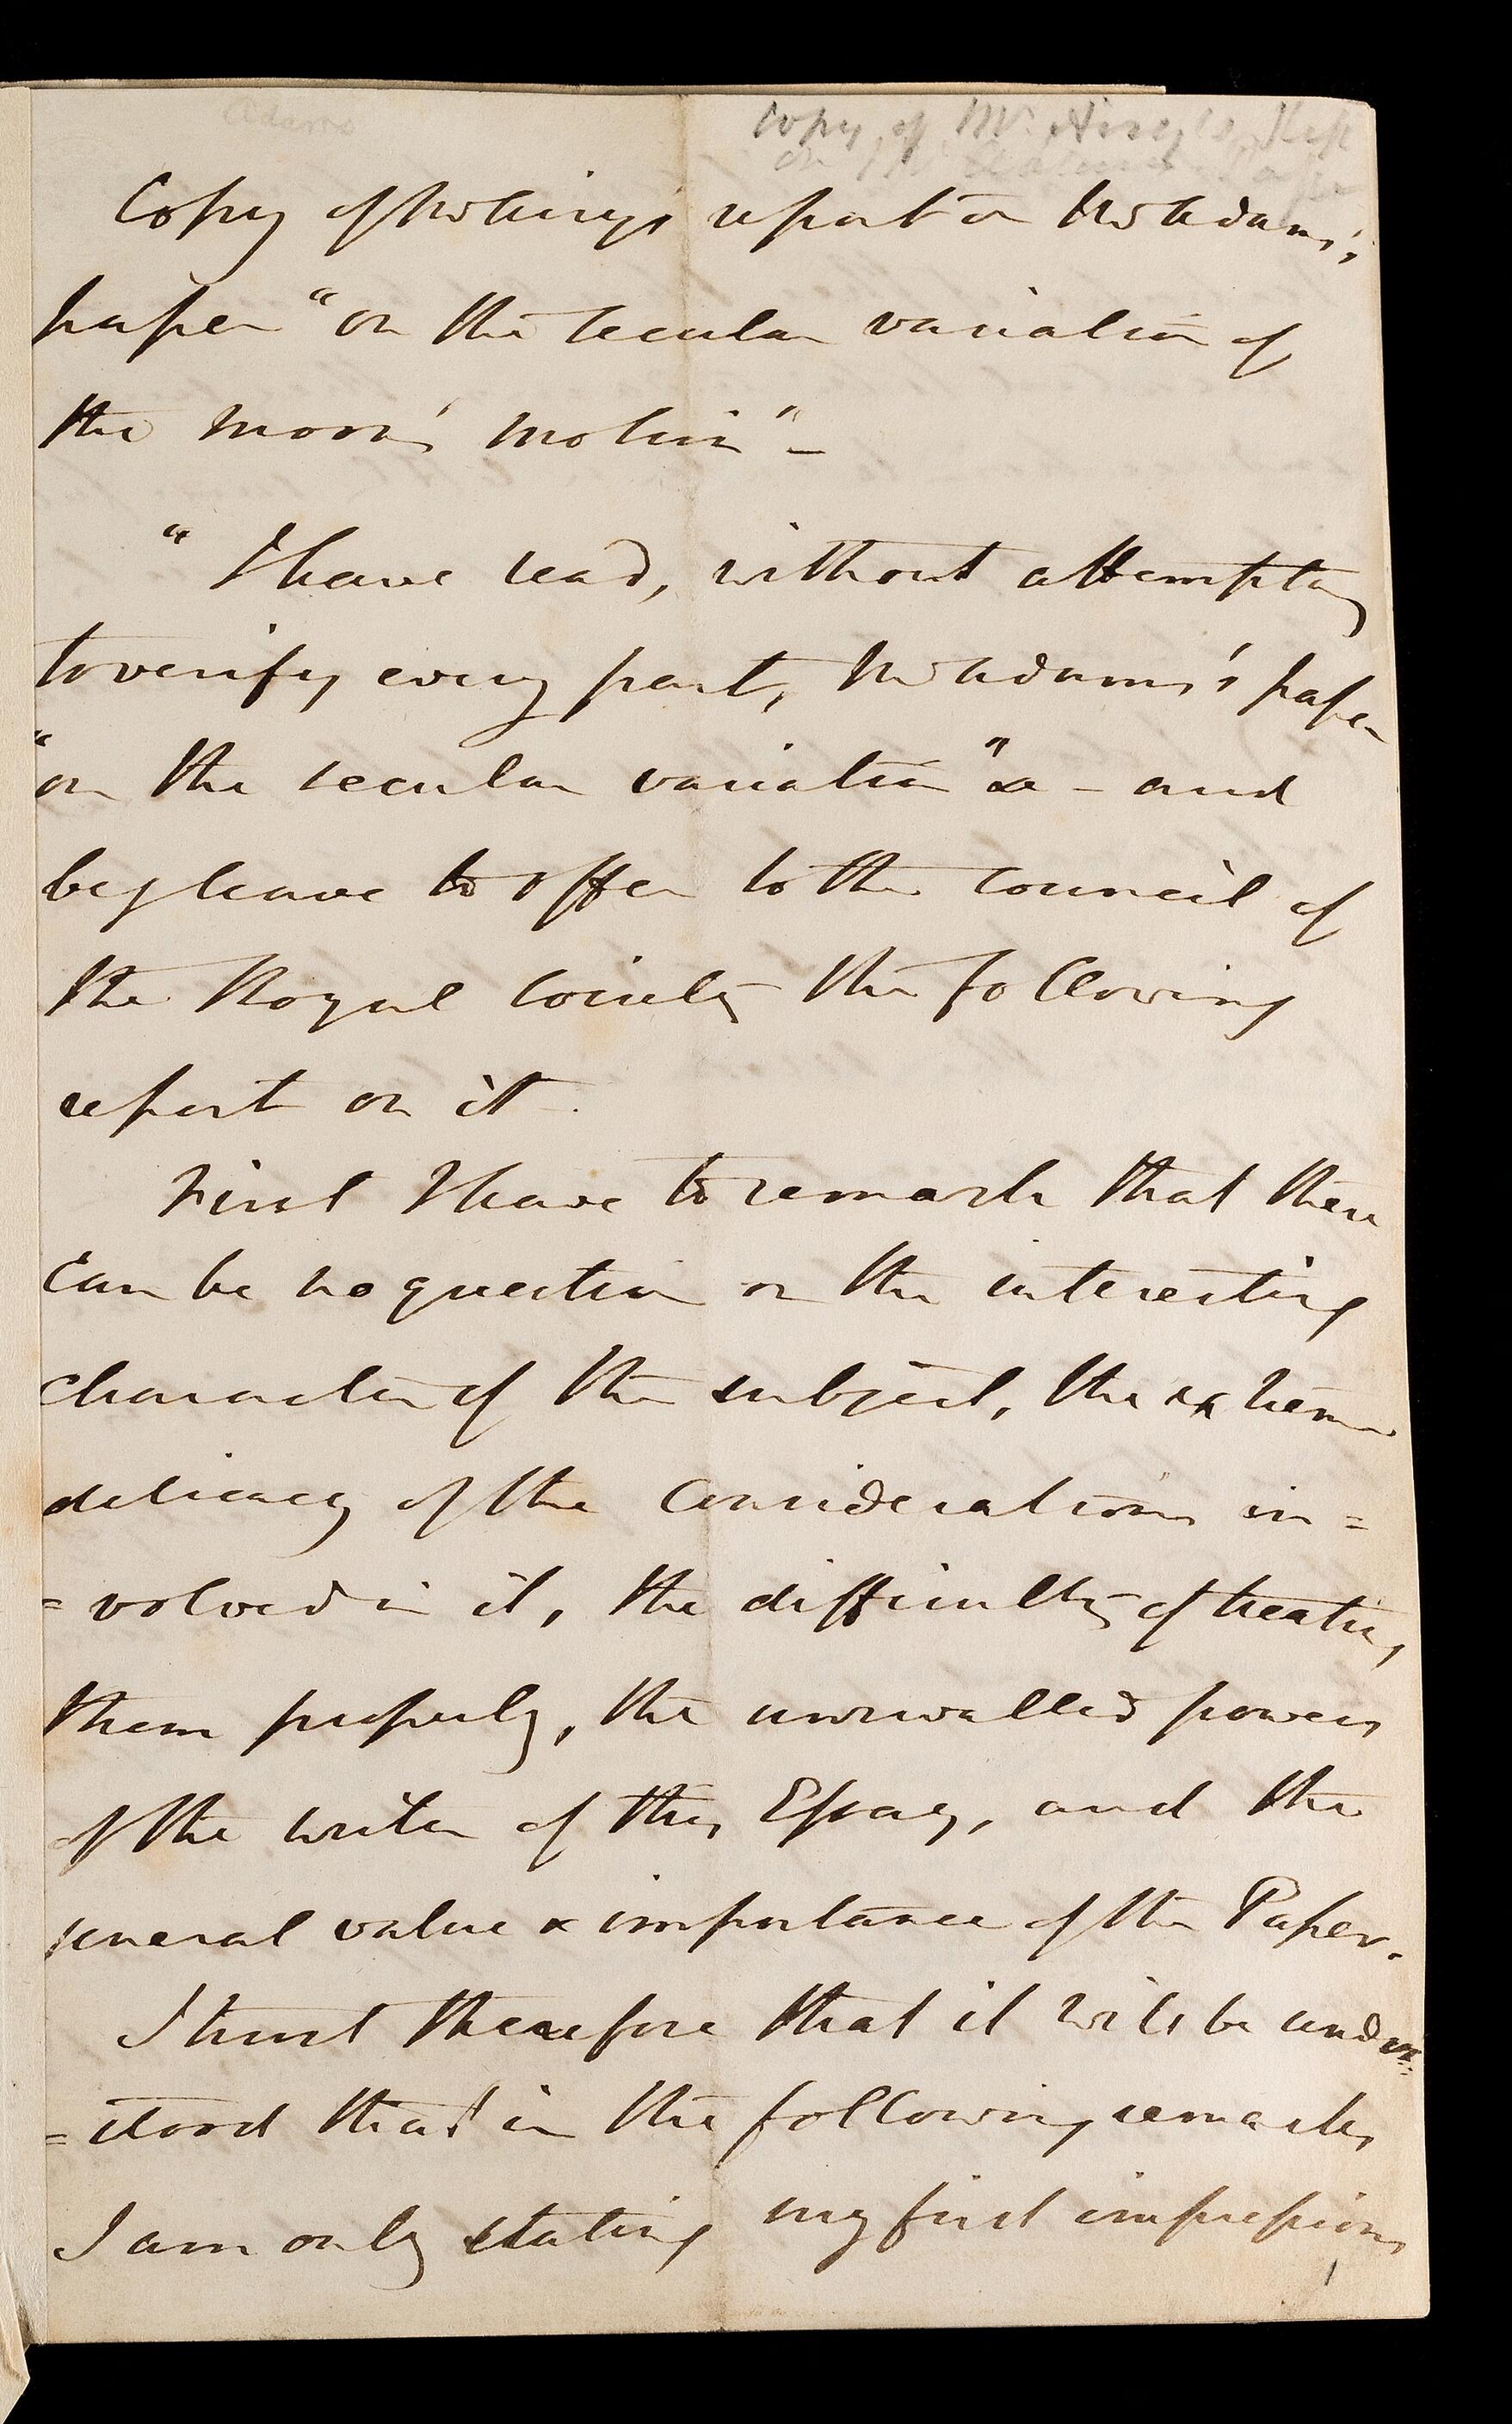 Adams
Copy of Mr. Airy's Rep
on Mr Adams's Paper
Copy of Mr Airy's report on Mr Adams's
paper "on the secular variation of
the moon's motion" –
" I have read, without attempting
to verify every part, Mr Adams's paper
"on the secular variation" &c – and
beg leave to offer to the Council of
the Royal Society the following
report on it .
First I have to remark that there
can be no question on the interesting
character of the subject, the extreme
delicacy of the considerations in=
=volved in it, the difficulty of treating
them properly, the unrivalled powers
of the writer of this Essay, and the
general value & importance of the Paper.
I trust therefore that it will be under=
=stood that in the following remarks,
I am only stating my first impressions
1